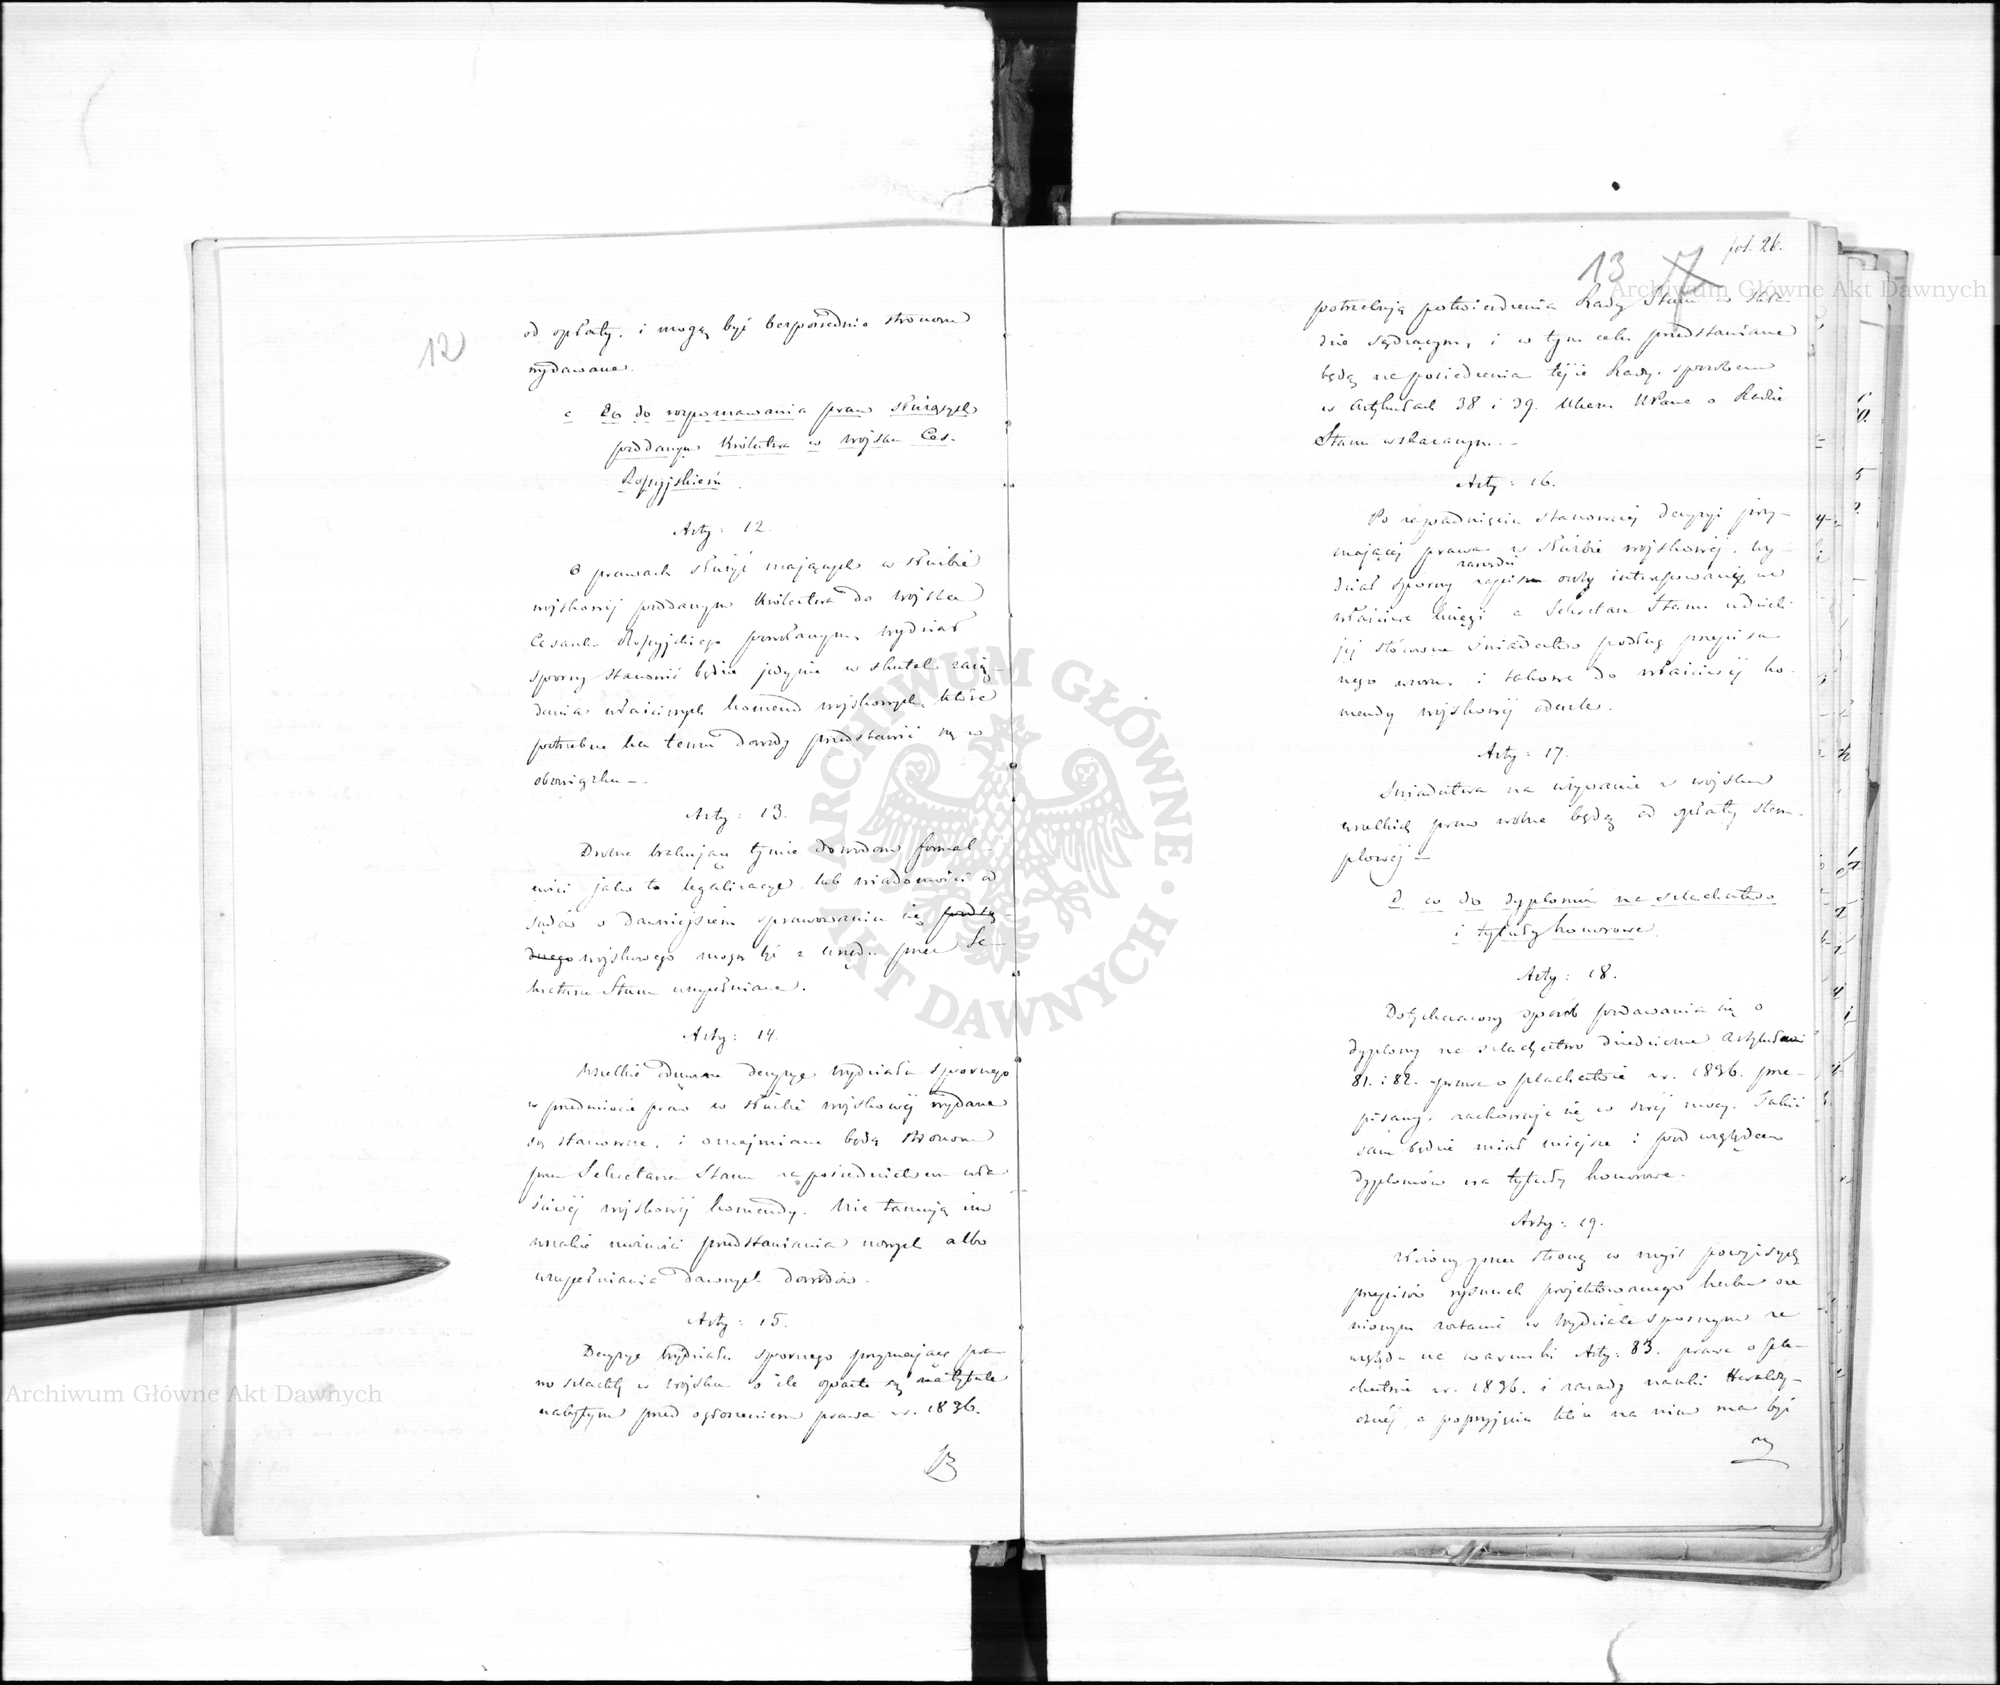 12
od opłaty, i mogą być bezpośrednio stronom
wydawane.
c. Co do rozpoznawania praw służących
poddanym Królestwa w wojsku Ces.
Rossyjskiem.
Arty: 12.
O prawach służyć mających w służbie
wojskowej poddanym Królestwa do wojska
Cesarsko Rossyjskiego powołanym, wydział
sporny stanowić będzie jedynie w skutek zażą-
dania właściwych komend wojskowych, które
potrzebne ku temu dowody przedstawić są w
obowiązku —.
Arty: 13.
Drobne brakujące tymże dowodom formal-
ności jako to legalizacye, lub wiadomości od
sądów o dawniejszém sprawowaniu się
wojskowego mogą być z urzędu przez Se-
kretarza Stanu uzupełniane.
Arty: 14.
Wszelkie odmowne decyzye wydziału spornego
w przedmiocie praw w służbie wojskowéj wydane
są stanowcze, i oznajmiane będą stronom
przez Sekretarza Stanu za pośrednictwem wła-
ściwéj wojskowéj komendy. Nie tamują im
wszakże możności przedstawiania nowych albo
uzupełniania dawnych dowodów.
Arty: 15.
Decyzye wydziału spornego przyznające pra-
wo szlachty w wojsku o ile oparte są na tytule
nabytym przed ogłoszeniem prawa z r. 1836.
fol. 26.
13 17
potrzebują potwierdzenia Rady Stanu w skła-
dzie sądzącym, i w tym celu przedstawiane
będą na posiedzenia téjże Rady, sposobem
w Artykułach 38 i 39. Ukazu o Radzie
Stanu wskazanym. —
Arty: 16.
Po zapadnięciu stanowczéj decyzyi przy-
znającéj prawa w służbie wojskowéj, wy-
dział sporny zarządzi zapisanie osoby interesowanéj, do
właściwéj księgi a Sekretarz Stanu udzieli
jéj stósowne świadectwo podług przepisa-
nego wzoru, i takowe do właściwéj ko-
mendy wojskowéj odeśle.
Arty: 17.
Świadectwa na używanie w wojsku
wszelkich praw wolne będą od opłaty stem-
plowéj —
d. co do dyplomów na szlachectwo
i tytuły honorowe.
Arty: 18.
Dotychczasowy sposób podawania się o
dyplomy na szlachectwo dziedziczne Artykułami
81. i 82. prawa o szlachectwie z r. 1836. prze-
pisany, zachowuje się w swéj mocy. Takiż
sam będzie miał miejsce i pod względem
dyplomów na tytuły honorowe.
Arty: 19.
Złożony przez stronę w myśl powyższych
przepisów rysunek projektowanego herbu oce-
nionym zostanie w Wydziale spornym ze
względu na warunki Arty: 83. prawa o szla-
chectwie z r. 1836. i zasady nauki Heraldy-
cznéj, a po przyjęciu który na nim ma być